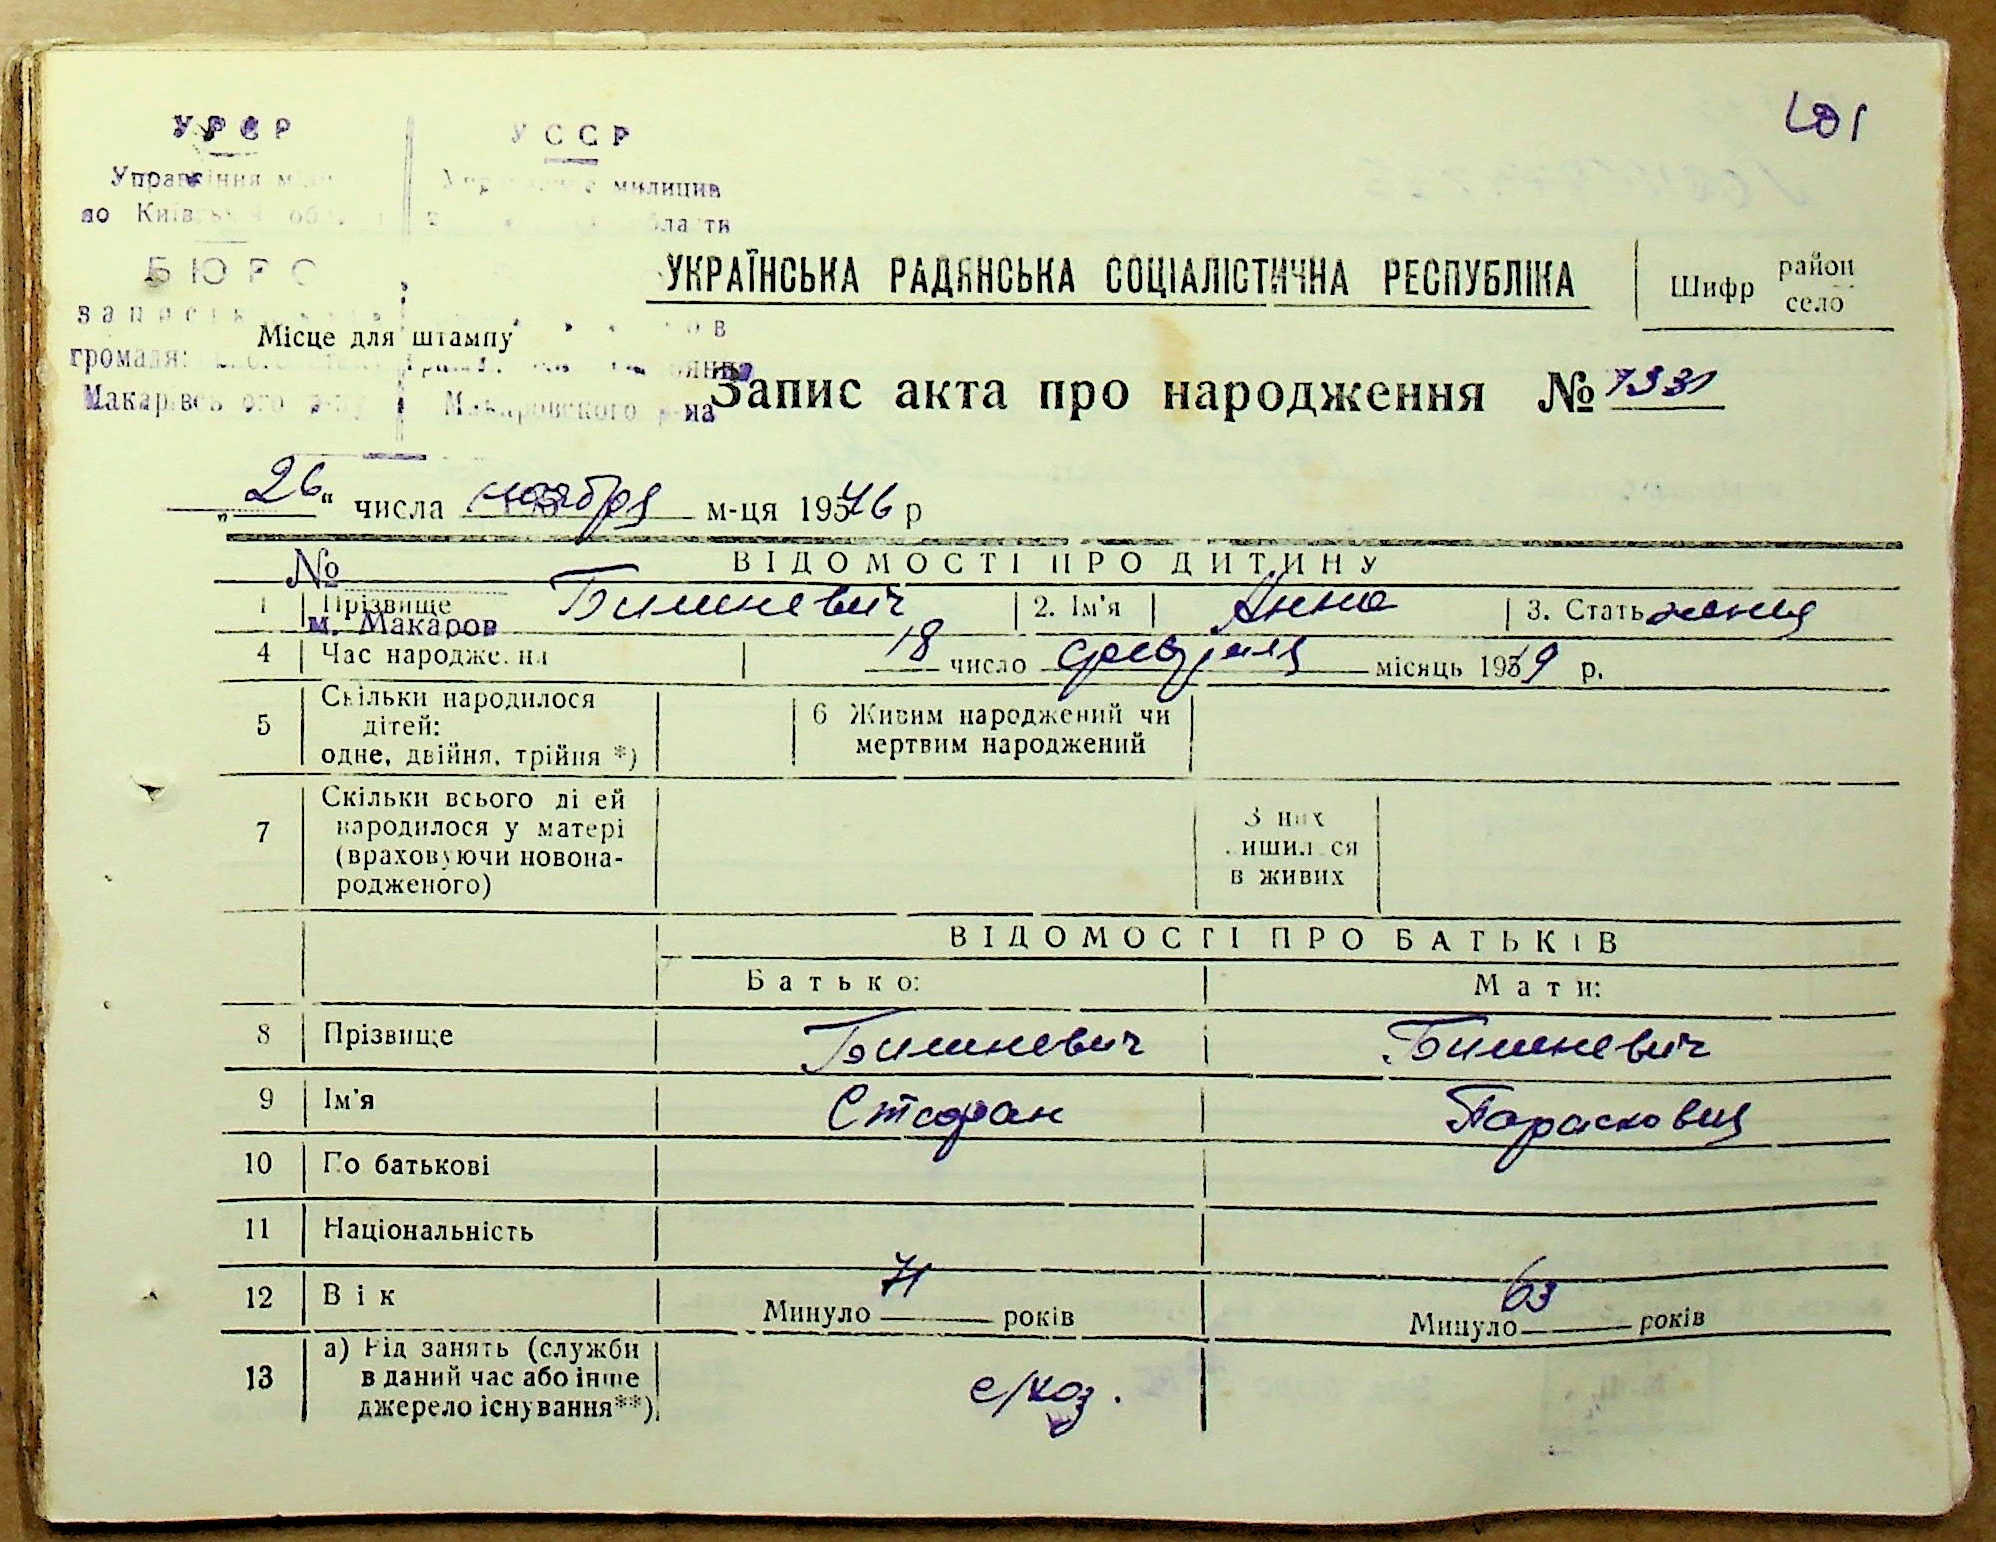 УРСР
УССР
Управління
милиции
по Київській
БЮРО
УКРАЇНСЬКА РАДЯНСЬКА СОЦІАЛІСТИЧНА РЕСПУБЛІКА
Шифр район село
Місце для штампу
Макарівського р-ну
Макаровского р-на
Запис акта про народження №
„26“ числа ноября м-ця 195 46 р
ВІДОМОСТІ ПРО ДИТИНУ
№
1 Прізвище Бишневич 2. Ім'я Анна 3. Стать женщ
м. Макаров
4 Час народження 18 число февраля місяць 19 р.
5 Скільки народилося дітей: одне, двійня, трійня *)
6 Живим народжений чи мертвим народжений
7 Скільки всього дітей народилося у матері (враховуючи новонародженого)
З них лишилося в живих
ВІДОМОСТІ ПРО БАТЬКІВ
Батько: Мати:
8 Прізвище Бишневич Бишневич
9 Ім'я Стефан Парасковия
10 По батькові
11 Національність
12 Вік Минуло 71 років Минуло 63 років
13 а) Рід занять (служби в даний час або інше джерело існування**)
с/хоз.